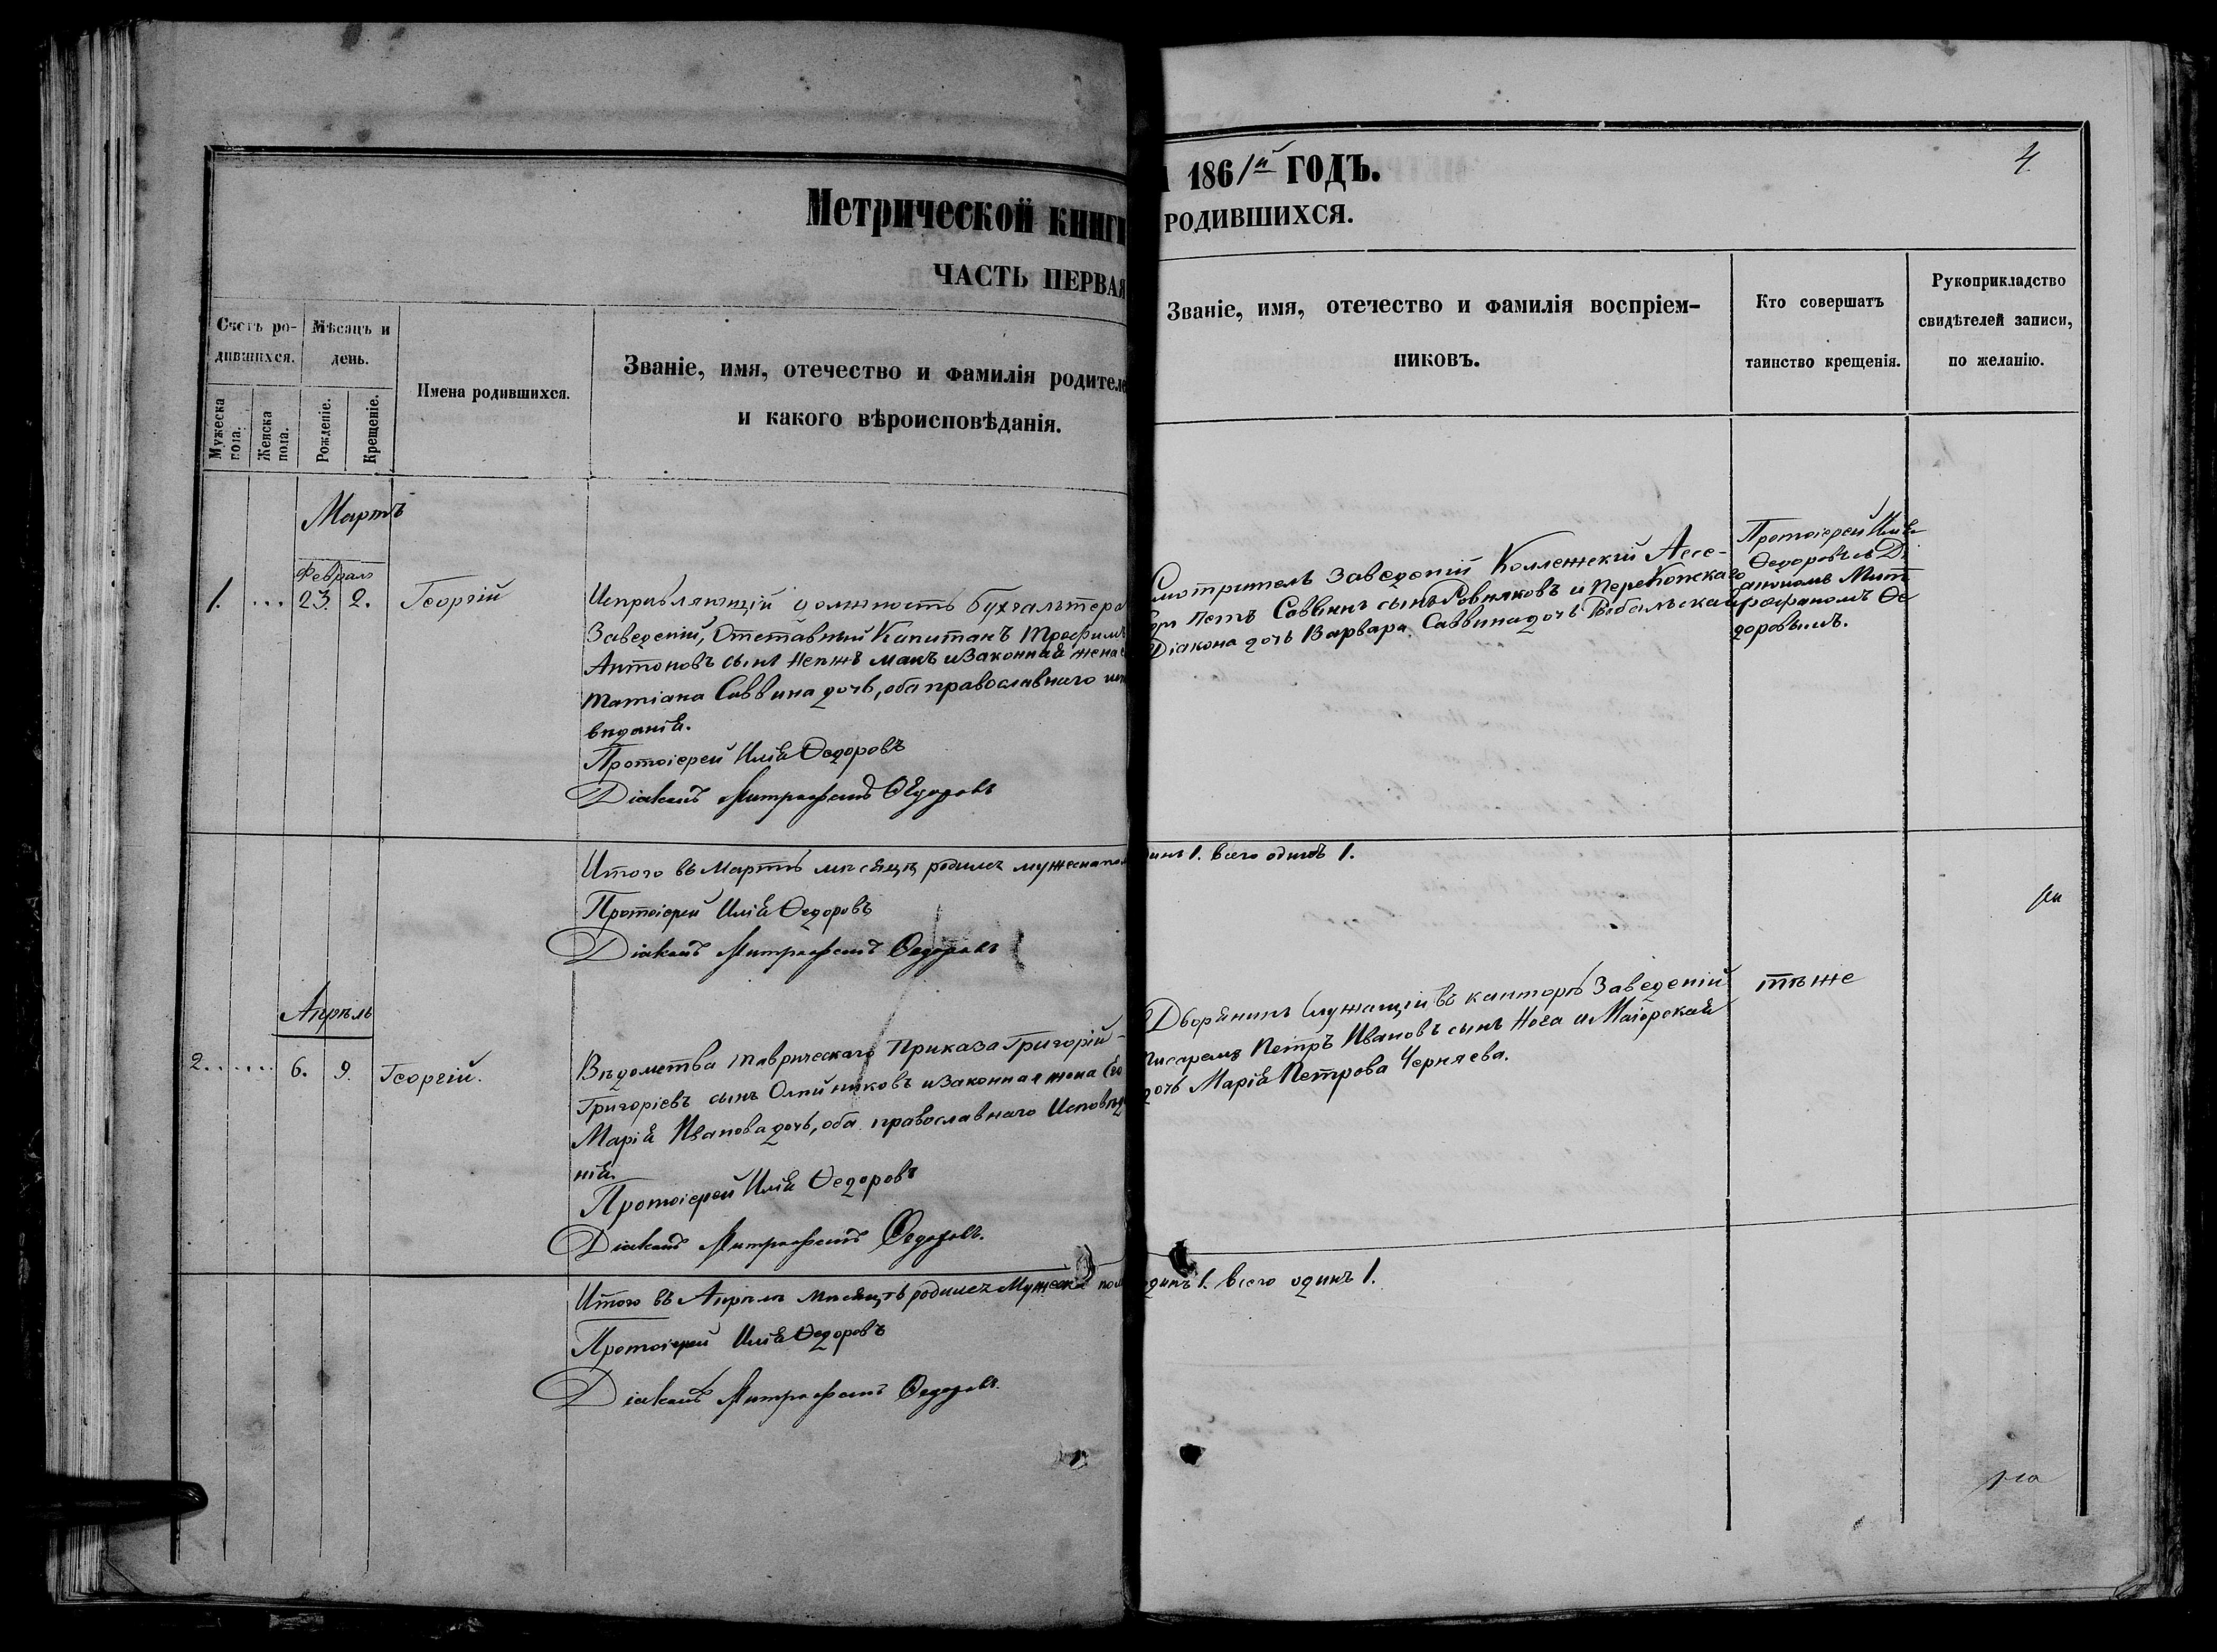 Метрической книги
ЧАСТЬ ПЕРВАЯ
1861й ГОДЪ.
РОДИВШИХСЯ.
4.
Счетъ ро-
дившихся.
Мужеска
пола.
Женска
пола.
Мѣсяцъ и
день.
Рожденіе.
Крещеніе.
Имена родившихся.
Званіе, имя, отечество и фамилія родителе
и какого вѣроисповѣданія.
Званіе, имя, отечество и фамилія воспріем-
никовъ.
Кто совершатъ
таинство крещенія.
Рукоприкладство
свидѣтелей записи,
по желанію.
Мартъ
Феврал
1. ... 23. 2. Георгій
Исправляющій должность бухгалтера
Заведеній, Отставный Капитанъ Трофимъ
Антоновъ сынъ и законная жена
Татіана Саввина дочь, оба православнаго
вѣданія.
Протоіерей Илія Ѳедоровъ
Діаконъ Митрофанъ Ѳедоровъ
Смотритель Заведеній Коллежскій Ассе-
Петръ Саввинъ сынъ Ровняковъ и Перекопскаго
Діакона дочь Варвара Саввина дочь
Протоіерей Илія
Ѳедоровъ съ Ді
акономъ Мит
рофаномъ Ѳе
доровымъ.
Итого въ Мартѣ мѣсяцѣ родилс мужеска пол
динъ 1. всего одинъ 1.
Протоіерей Илія Ѳедоровъ
Діаконъ Митрофанъ Ѳедоровъ
Апрѣль
2. ...... 6. 9. Георгій.
Вѣдомства Таврическаго Приказа Григорій
Григоріевъ сынъ Олійниковъ и законная жена Его
Марія Иванова дочь, оба православнаго Исповѣд
нія.
Протоіерей Илія Ѳедоровъ
Діаконъ Митрофанъ Ѳедоровъ.
Дворянинъ Служащій въ канторѣ Заведеній
Писаремъ Петръ Ивановъ сынъ Нога и Маіорская
дочь Марія Петрова Черняева.
тѣ же
Итого въ Апрѣлѣ мѣсяцѣ родилс Мужеска пол
динъ 1. всего одинъ 1.
Протоіерей Илія Ѳедоровъ
Діаконъ Митрофанъ Ѳедоровъ.